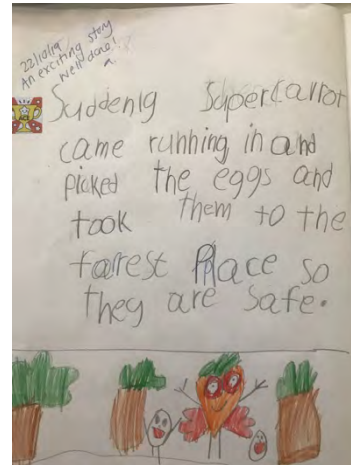 22/10/19
An exciting story
Well done!
Suddenly Supercarrot
came running in and
picked the eggs and
took them to the
tarrest Place so
they are safe.